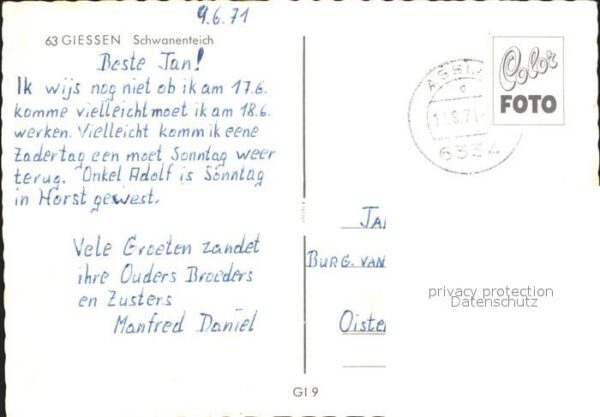 9.6.71
63 GIESSEN Schwanenteich
Beste Jan!
Ik wijs nog niet ob ik am 17.6.
komme vielleicht moet ik am 18.6.
werken. Vielleicht komm ik eene
Zadertag een moet Sonntag weer
terug. Onkel Adolf is Sonntag
in Horst gewest.
Vele Groeten zandet
ihre Ouders Broeders
en Zusters
Manfred Daniel
Color
FOTO
6334
JA
BURG. VAN
Oister
privacy protection
Datenschutz
GI 9